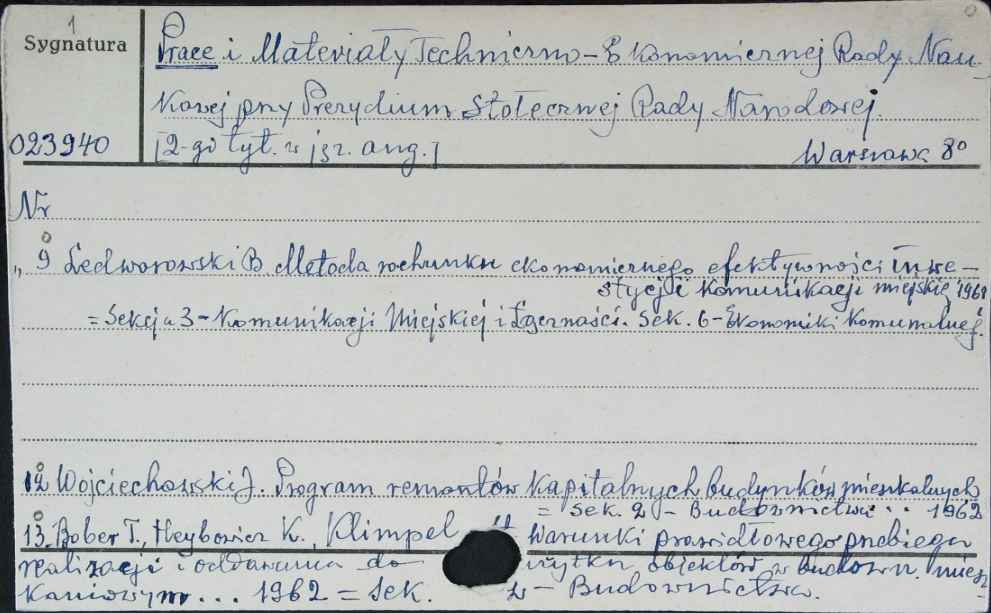 1
Sygnatura
Prace i Materiały Techniczno-Ekonomicznej Rady Nau-
kowej przy Prezydium Stołecznej Rady Narodowej.
023940
[2-gi tyt. w jęz. ang.]
Warszawa 8°
Nr
„ 9 Ledworowski B. Metoda rachunku ekonomicznego efektywności inwe-
stycji komunikacji miejskiej 1961
= Sekcja 3 - Komunikacji Miejskiej i Łączności. Sek. 6 - Ekonomiki Komunalnej.
12 Wojciechowski J. Program remontów kapitalnych budynków mieszkalnych
= Sek. 2 - Budownictwa... 1962
13. Bober T., Heybowicz K., Klimpel Warunki prawidłowego przebiegu
realizacji i oddawania do użytku obiektów w budown. miesz-
kaniowym... 1962 = Sek. 2 - Budownictwa.